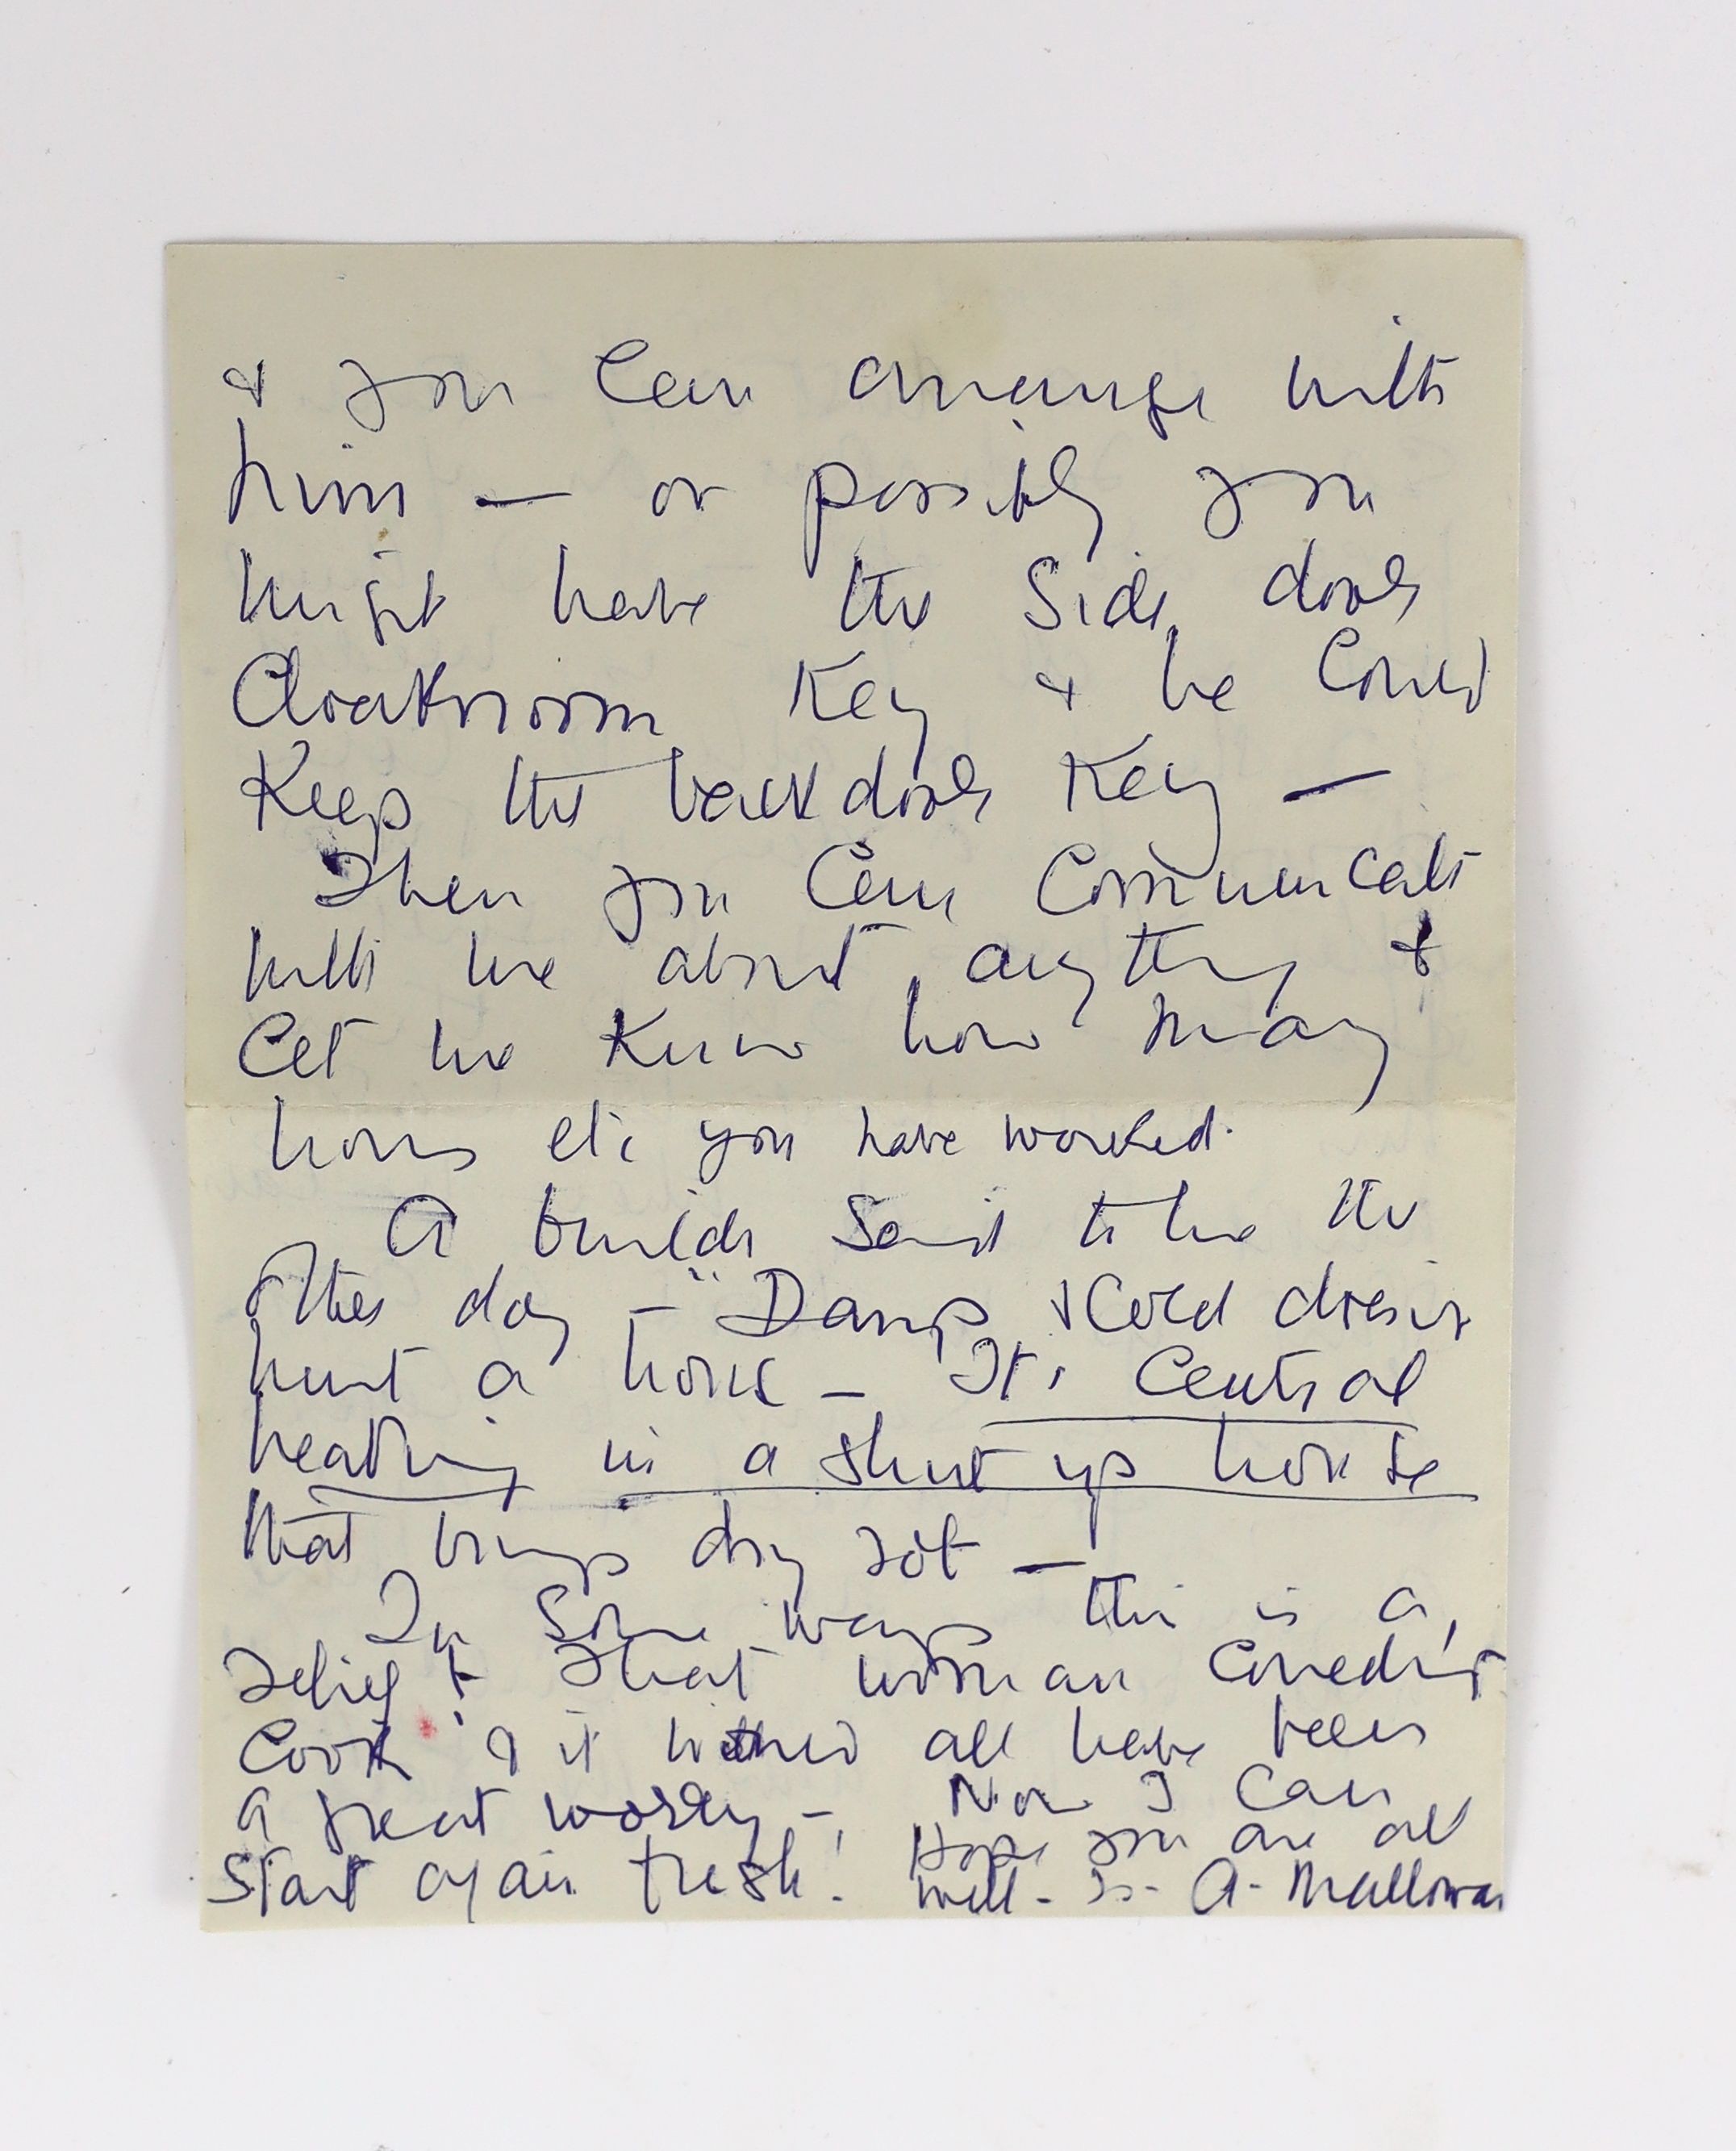 & you can arrange with
him — or possibly you
might have the side door
Cloakroom Key & he could
Keep the back door Key —
Then you can Communicate
with me about anything &
let me know how many
hours etc you have worked.
A builder said to me the
other day - "Damp & Cold doesn't
hurt a house - It's Central
heating in a shut up house
that brings dry rot —
In some ways this is a
relief & that woman couldn't
Cook & it would all have been
a great worry - Now I can
start again fresh! Hope you are all
well - A. Mallowan